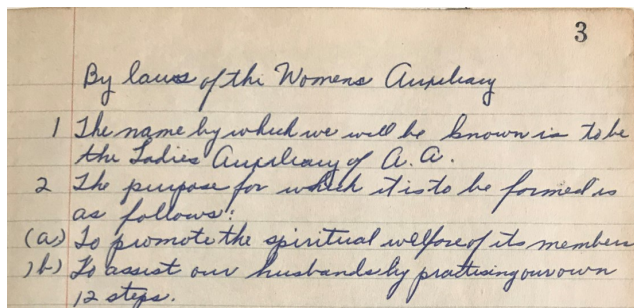 3
By laws of the Womens Auxiliary
1 The name by which we will be known is to be
the Ladies Auxiliary of A. A.
2 The purpose for which it is to be formed is
as follows:
(a) To promote the spiritual welfare of its members
(b) To assist our husbands by practising our own
12 steps.